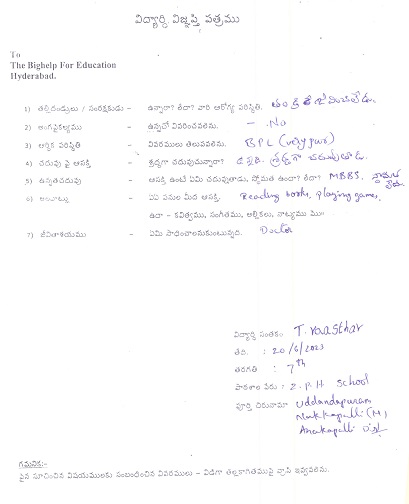 విద్యార్థి విజ్ఞప్తి పత్రము
To
The Bighelp For Education
Hyderabad.
1) తల్లిదండ్రులు / సంరక్షకుడు - ఉన్నారా? లేదా? వారి ఆరోగ్య పరిస్థితి. తండ్రి జీవించిలేడు.
2) అంగవైకల్యము - ఉన్నచో వివరించవలెను. - No
3) ఆర్థిక పరిస్థితి - వివరములు తెలుపవలెను. BPL (very poor)
4) చదువు పై ఆసక్తి - శ్రద్ధగా చదువుచున్నారా? శ్రద్ధగా చదువుతాడు.
5) ఉన్నతచదువు - ఆసక్తి ఉంటే ఏమి చదువుతాడు, స్తోమత ఉందా? లేదా? MBBS, స్తోమత లేదు
6) అలవాట్లు - ఏఏ పనుల మీద ఆసక్తి. Reading books, playing games,
ఉదా - కవిత్వము, సంగీతము, అల్లికలు, నాట్యము ము॥
7) జీవితాశయము - ఏమి సాధించాలనుకుంటున్నది. Doctor
విద్యార్థి సంతకం : T.
తేది. : 20/6/2023
తరగతి : 7th
పాఠశాల పేరు : Z.P.H School
పూర్తి చిరునామా Uddandapuram
Nakkapalli (M)
Anakapalli Dist
గమనిక:-
పైన సూచించిన విషయములకు సంబంధించిన వివరములు - విడిగా తెల్లకాగితముపై వ్రాసి ఇవ్వవలెను.